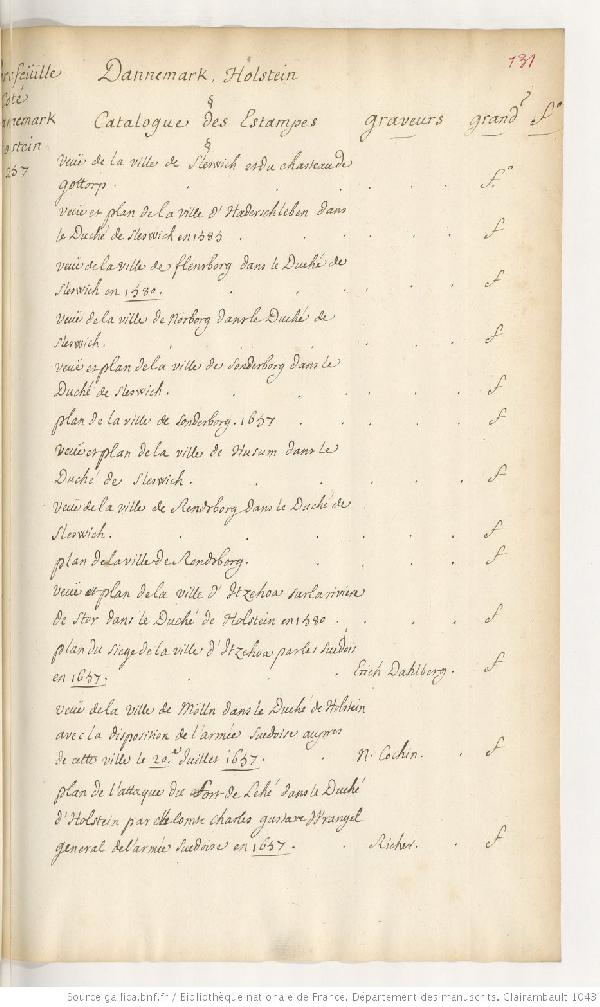 131
Dannemark, Holstein
portefeüille
Coté
Dannemark
holstein
257
§
Catalogue des Estampes graveurs grandr fo
§
veüe de la ville de Sleswich et du chasteau de
gottorp. fo
veüe et plan de la ville d'Haderschleben dans
le Duché de Sleswich en 1585 f
veüe de la ville de flensborg dans le Duché de
Sleswich en 1580. f
veüe de la ville de Norborg dans le Duché de
Sleswich. f
veüe et plan de la ville de Sonderborg dans le
Duché de Sleswich. f
plan de la ville de Sonderborg. 1657 f
veüe et plan de la ville de Husum dans le
Duché de Sleswich. f
veüe de la ville de Rendsborg dans le Duché de
Sleswich. f
plan de la ville de Rendsborg. f
veüe et plan de la ville d'Itzehoa sur la riviere
de Stor dans le Duché de Holstein en 1580. f
plan du siege de la ville d'Itzehoa par les Suedois
en 1657. Erich Dahlberg. f
veüe de la ville de Mölln dans le Duché de Holstein
avec la disposition de l'armée suedoise aupres
de cette ville le 20.e Juillet 1657. N. Cochin. f
plan de l'attaque du Fort de Lehé dans le Duché
d'Holstein par le Comte Charles gustave Wrangel
general de l'armée suedoise en 1657. Richer. f
Source gallica.bnf.fr / Bibliothèque nationale de France. Département des manuscrits. Clairambault 1043